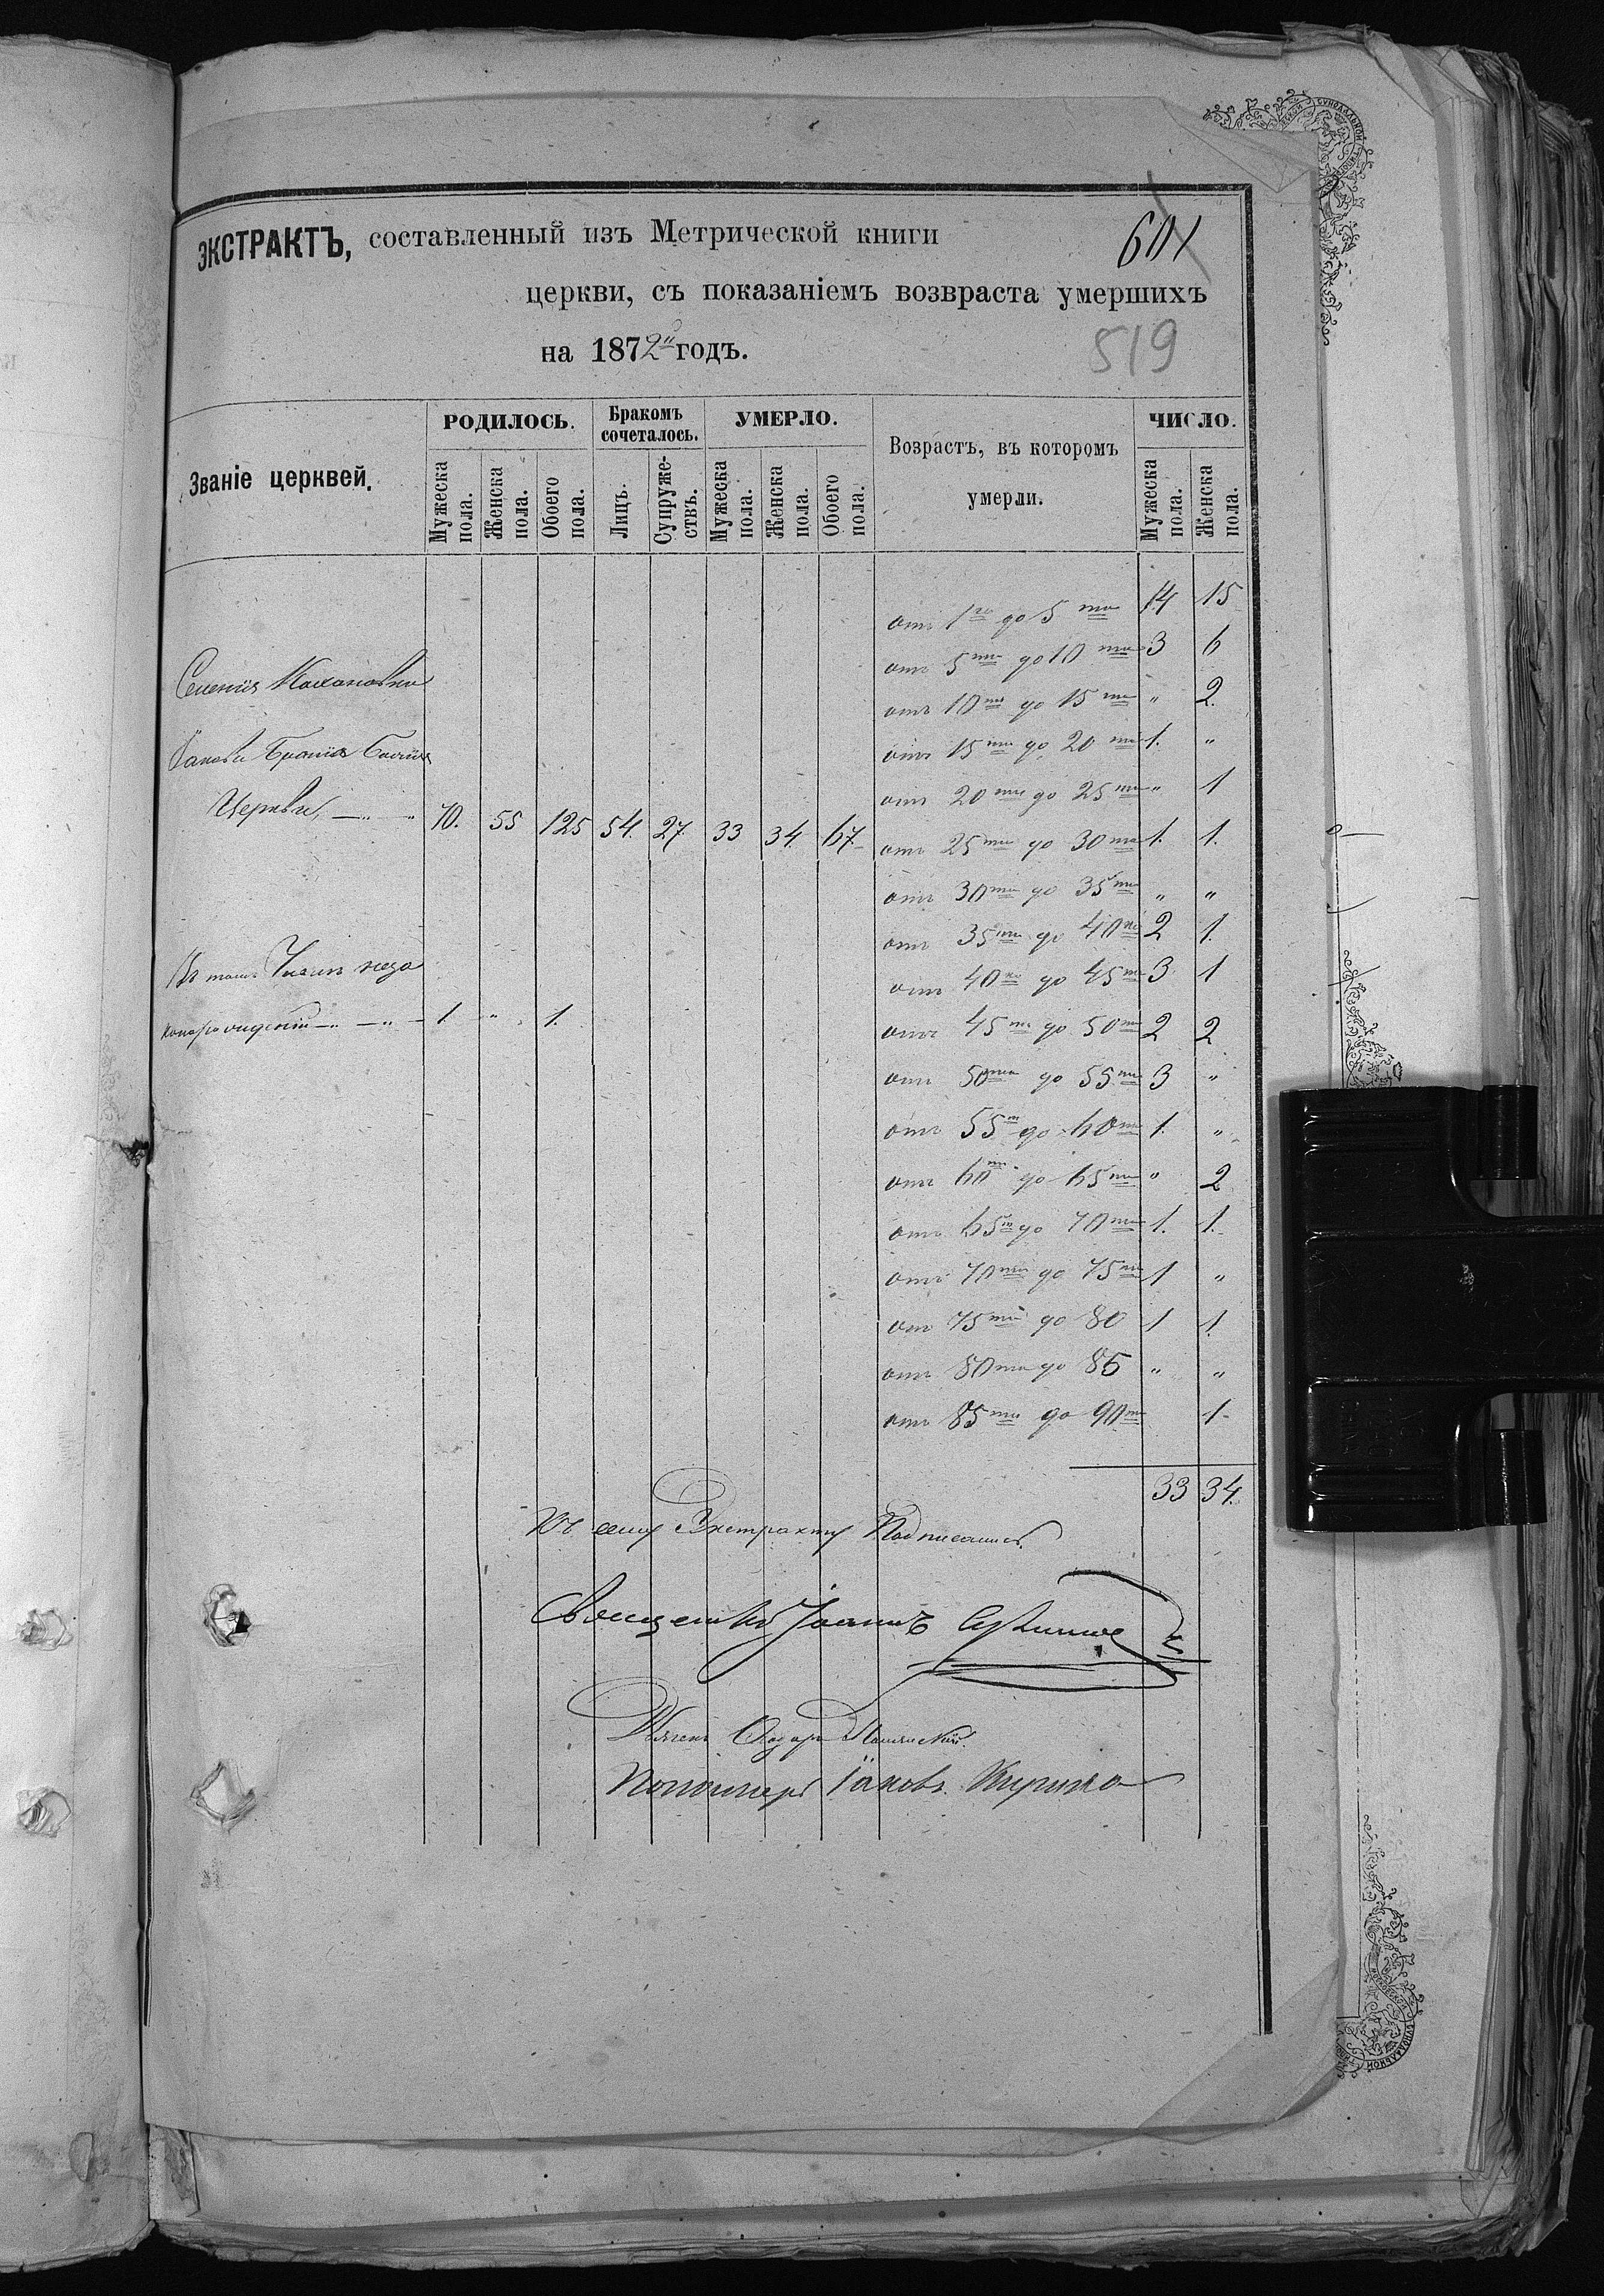 ЭКСТРАКТЪ, составленный изъ Метрической книги
601
церкви, съ показаніемъ возвраста умершихъ
на 1872й годъ.
519
Званіе церквей.
РОДИЛОСЬ.
Мужеска пола.
Женска пола.
Обоего пола.
Бракомъ сочеталось.
Лицъ.
Супружествъ.
УМЕРЛО.
Мужеска пола.
Женска пола.
Обоего пола.
Возрастъ, въ которомъ умерли.
ЧИСЛО.
Мужеска пола.
Женска пола.
отъ 1го до 5ти 14 15
отъ 5ти до 10ти 3 6
Селенія
отъ 10ти до 15ти " 2.
отъ 15ти до 20ти 1. "
отъ 20ти до 25ти " 1
Церкви, —"— " 70. 55 125 54. 27. 33 34. 67.
отъ 25ти до 30ти 1. 1.
отъ 30ти до 35ти " "
отъ 35ти до 40ка 2 1.
Въ томъ Числѣ неза
отъ 40ка до 45ти 3 1
1. " 1.
отъ 45ти до 50ти 2 2
отъ 50ти до 55ти 3 "
отъ 55ти до 60ти 1. "
отъ 60ти до 65ти " 2
отъ 65ти до 70ти 1. 1.
отъ 70ти до 75ти 1 "
отъ 75ти до 80 1 1.
отъ 80ти до 85 " "
отъ 85ти до 90ти 1
33 34.
Къ сему Экстракту Подписались.
Священникъ Іоаннъ
Дьяконъ
Пономарь Іаковъ